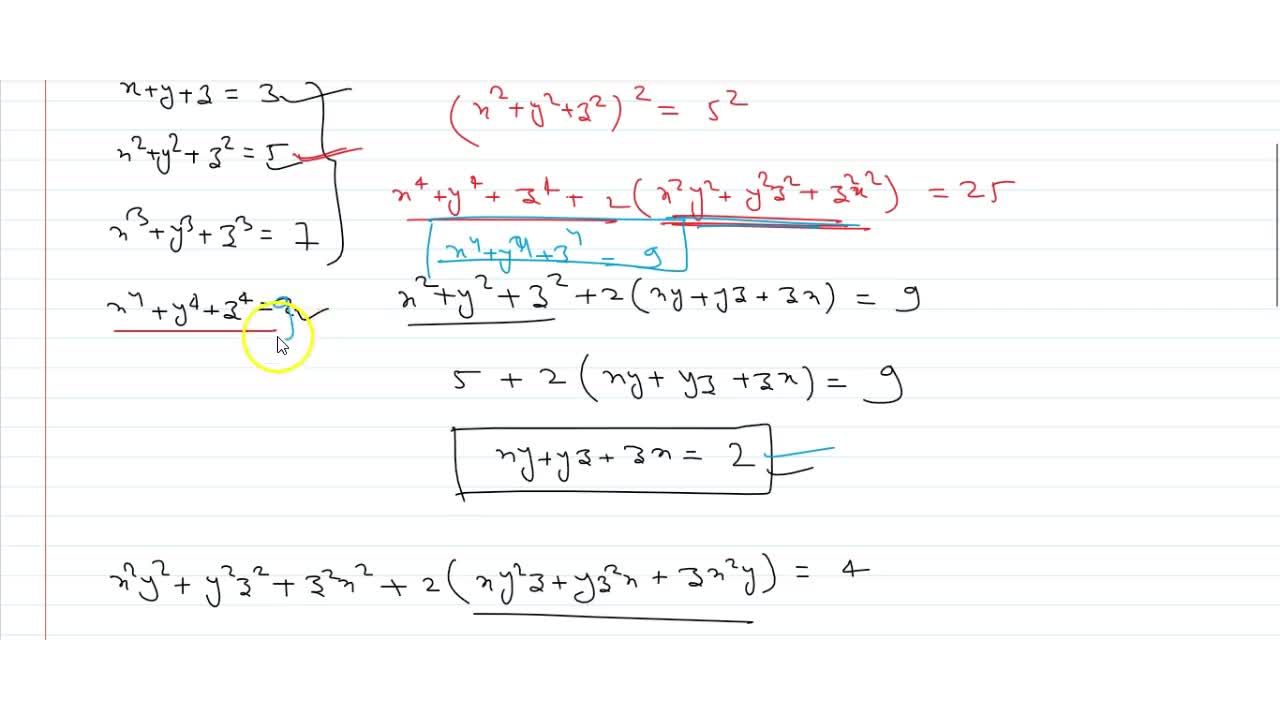 x+y+z = 3
x²+y²+z² = 5
x³+y³+z³ = 7
x⁴+y⁴+z⁴ = 9
(x²+y²+z²)² = 5²
x⁴+y⁴+z⁴+2(x²y²+y²z²+z²x²) = 25
x⁴+y⁴+z⁴ = 9
x²+y²+z²+2(xy+yz+zx) = 9
5+2(xy+yz+zx) = 9
xy+yz+zx = 2
x²y²+y²z²+z²x²+2(xy²z+yz²x+zx²y) = 4